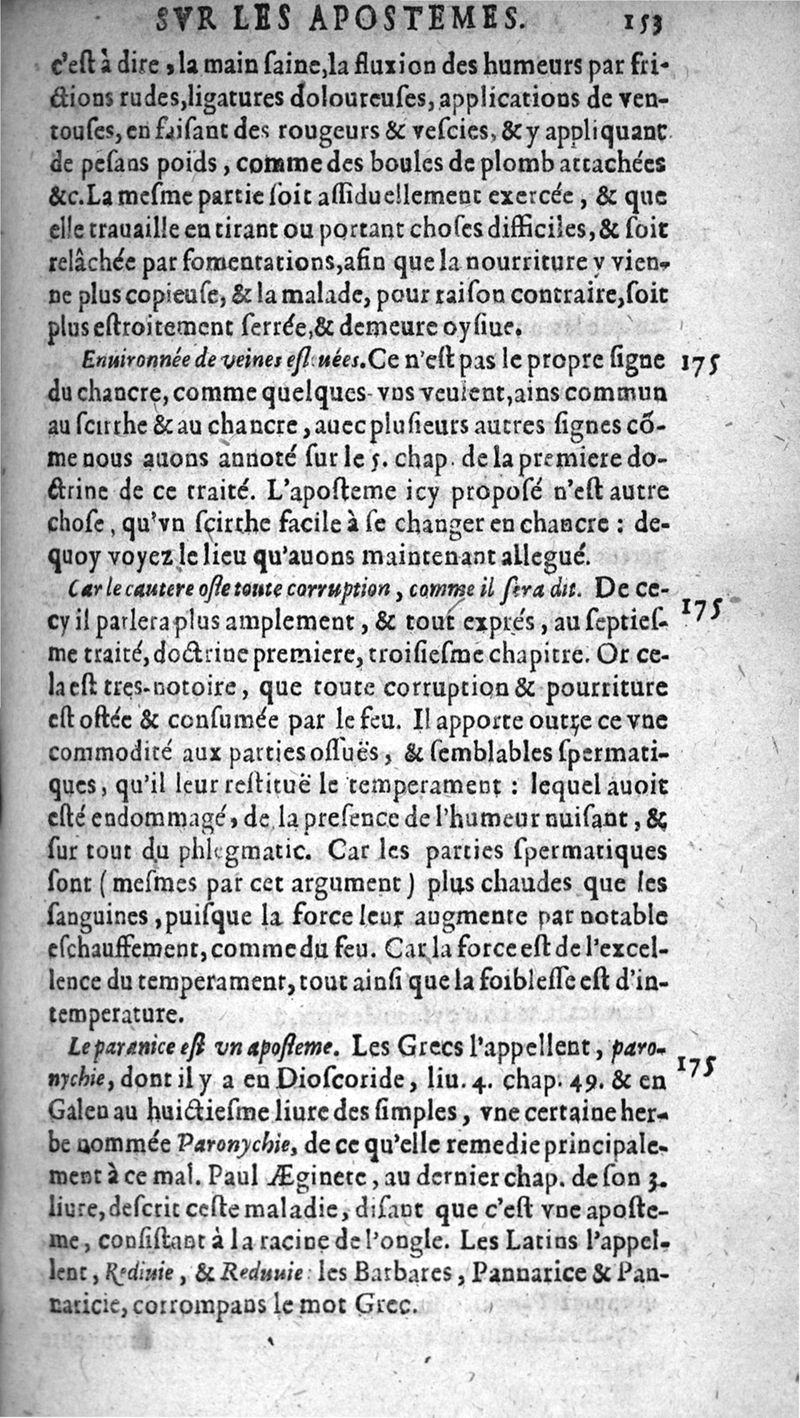 SVR LES APOSTEMES. 153
c'eſt à dire, la main ſaine, la fluxion des humeurs par fri-
ctions rudes, ligatures doloureuſes, applications de ven-
touſes, en faiſant des rougeurs & veſcies, & y appliquant
de peſans poids, comme des boules de plomb attachées
&c. La meſme partie ſoit aſſiduellement exercée, & que
elle trauaille en tirant ou portant choſes difficiles, & ſoit
relâchée par fomentations, afin que la nourriture y vien-
ne plus copieuſe, & la malade, pour raiſon contraire, ſoit
plus eſtroitement ſerrée, & demeure oyſiue.
Enuironnée de veines eſleuées. Ce n'eſt pas le propre ſigne 175
du chancre, comme quelques-vns veulent, ains commun
au ſcirrhe & au chancre, auec pluſieurs autres ſignes cõ-
me nous auons annoté ſur le 5. chap. de la premiere do-
ctrine de ce traité. L'apoſteme icy propoſé n'eſt autre
choſe, qu'vn ſcirrhe facile à ſe changer en chancre : de-
quoy voyez le lieu qu'auons maintenant allegué.
Car le cautere oſte toute corruption, comme il ſera dit. De ce- 175
cy il parlera plus amplement, & tout exprés, au ſeptieſ-
me traité, doctrine premiere, troiſieſme chapitre. Or ce-
la eſt tres-notoire, que toute corruption & pourriture
eſt oſtée & conſumée par le feu. Il apporte outre ce vne
commodité aux parties oſſuës, & ſemblables ſpermati-
ques, qu'il leur reſtituë le temperament : lequel auoit
eſté endommagé, de la preſence de l'humeur nuiſant, &
ſur tout du phlegmatic. Car les parties ſpermatiques
ſont (meſmes par cet argument) plus chaudes que les
ſanguines, puiſque la force leur augmente par notable
eſchauffement, comme du feu. Car la force eſt de l'excel-
lence du temperament, tout ainſi que la foibleſſe eſt d'in-
temperature.
Le paranice eſt vn apoſteme. Les Grecs l'appellent, paro- 175
nychie, dont il y a en Dioſcoride, liu. 4. chap. 49. & en
Galen au huictieſme liure des ſimples, vne certaine her-
be nommée Paronychie, de ce qu'elle remedie principale-
ment à ce mal. Paul Æginete, au dernier chap. de ſon 3.
liure, deſcrit ceſte maladie, diſant que c'eſt vne apoſte-
me, conſiſtant à la racine de l'ongle. Les Latins l'appel-
lent, Rediuie, & Reduuie : les Barbares, Pannarice & Pan-
naricie, corrompans le mot Grec.